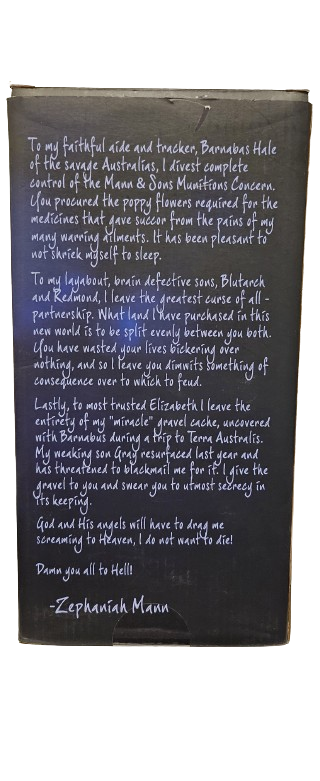 To my faithful aide and tracker, Barnabas Hale
of the savage Australias, I divest complete
control of the Mann & Sons Munitions Concern.
You procured the poppy flowers required for the
medicines that gave succor from the pains of my
many warring ailments. It has been pleasant to
not shriek myself to sleep.
To my layabout, brain defective sons, Blutarch
and Redmond, I leave the greatest curse of all -
partnership. What land I have purchased in this
new world is to be split evenly between you both.
You have wasted your lives bickering over
nothing, and so I leave you dimwits something of
consequence over to which to feud.
Lastly, to most trusted Elizabeth I leave the
entirety of my "miracle" gravel cache, uncovered
with Barnabus during a trip to Terra Australis.
My weaking son Gray resurfaced last year and
has threatened to blackmail me for it. I give the
gravel to you and swear you to utmost secrecy in
its keeping.
God and His angels will have to drag me
screaming to Heaven, I do not want to die!
Damn you all to Hell!
-Zephaniah Mann